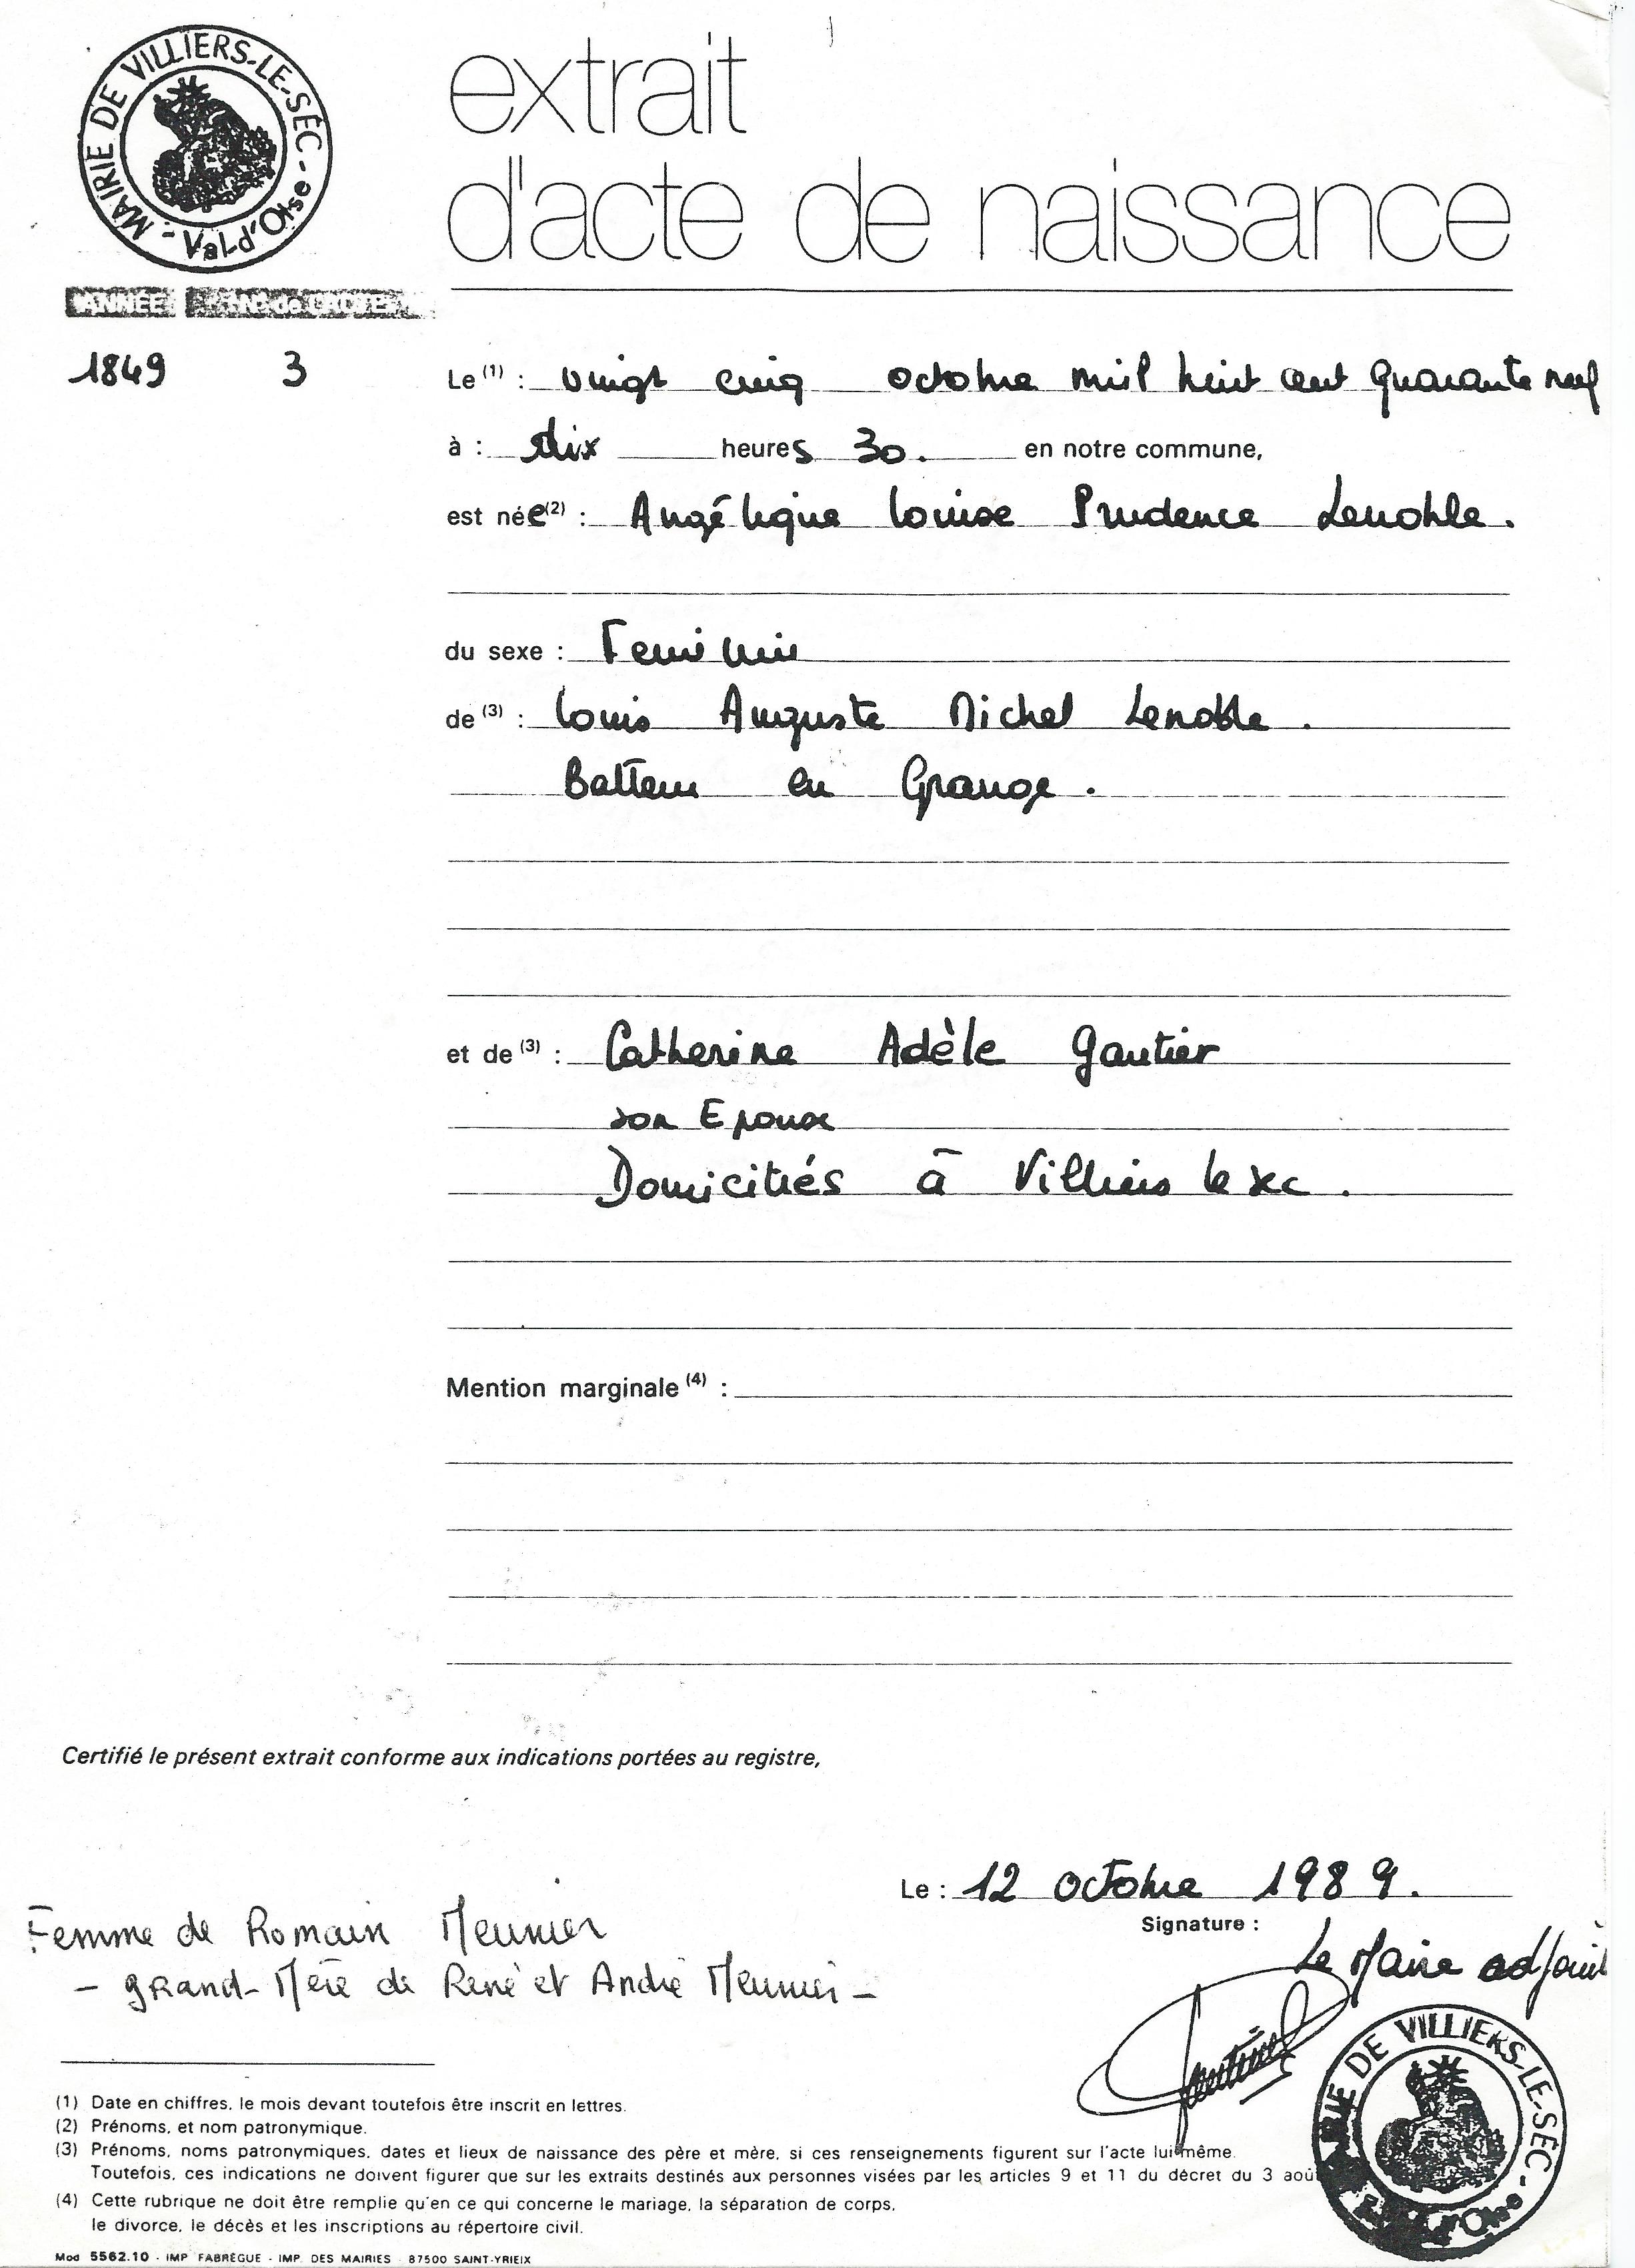 MAIRIE DE VILLIERS-LE-SEC - Val-d'Oise -
extrait
d'acte de naissance
ANNÉE N° de L'ACTE
1849 3
Le (1) : vingt cinq octobre mil huit cent quarante neuf
à : dix heures 30. en notre commune,
est née (2) : Angélique Louise Prudence Lenoble.
du sexe : Feminin
de (3) : Louis Auguste Michel Lenoble.
Batteur en Grange.
et de (3) : Catherine Adèle Gautier
son Epouse
Domiciliés à Villiers le sec.
Mention marginale (4) :
Certifié le présent extrait conforme aux indications portées au registre,
Le : 12 octobre 1989.
Signature :
Le Maire adjoint
Femme de Romain Meunier
- grand-Mère de René et André Meunier -
MAIRIE DE VILLIERS-LE-SEC - Val-d'Oise -
(1) Date en chiffres, le mois devant toutefois être inscrit en lettres.
(2) Prénoms, et nom patronymique.
(3) Prénoms, noms patronymiques, dates et lieux de naissance des père et mère, si ces renseignements figurent sur l'acte lui-même.
Toutefois, ces indications ne doivent figurer que sur les extraits destinés aux personnes visées par les articles 9 et 11 du décret du 3 aoû
(4) Cette rubrique ne doit être remplie qu'en ce qui concerne le mariage, la séparation de corps,
le divorce, le décès et les inscriptions au répertoire civil.
Mod 5562.10 - IMP FABRÈGUE - IMP. DES MAIRIES - 87500 SAINT-YRIEIX